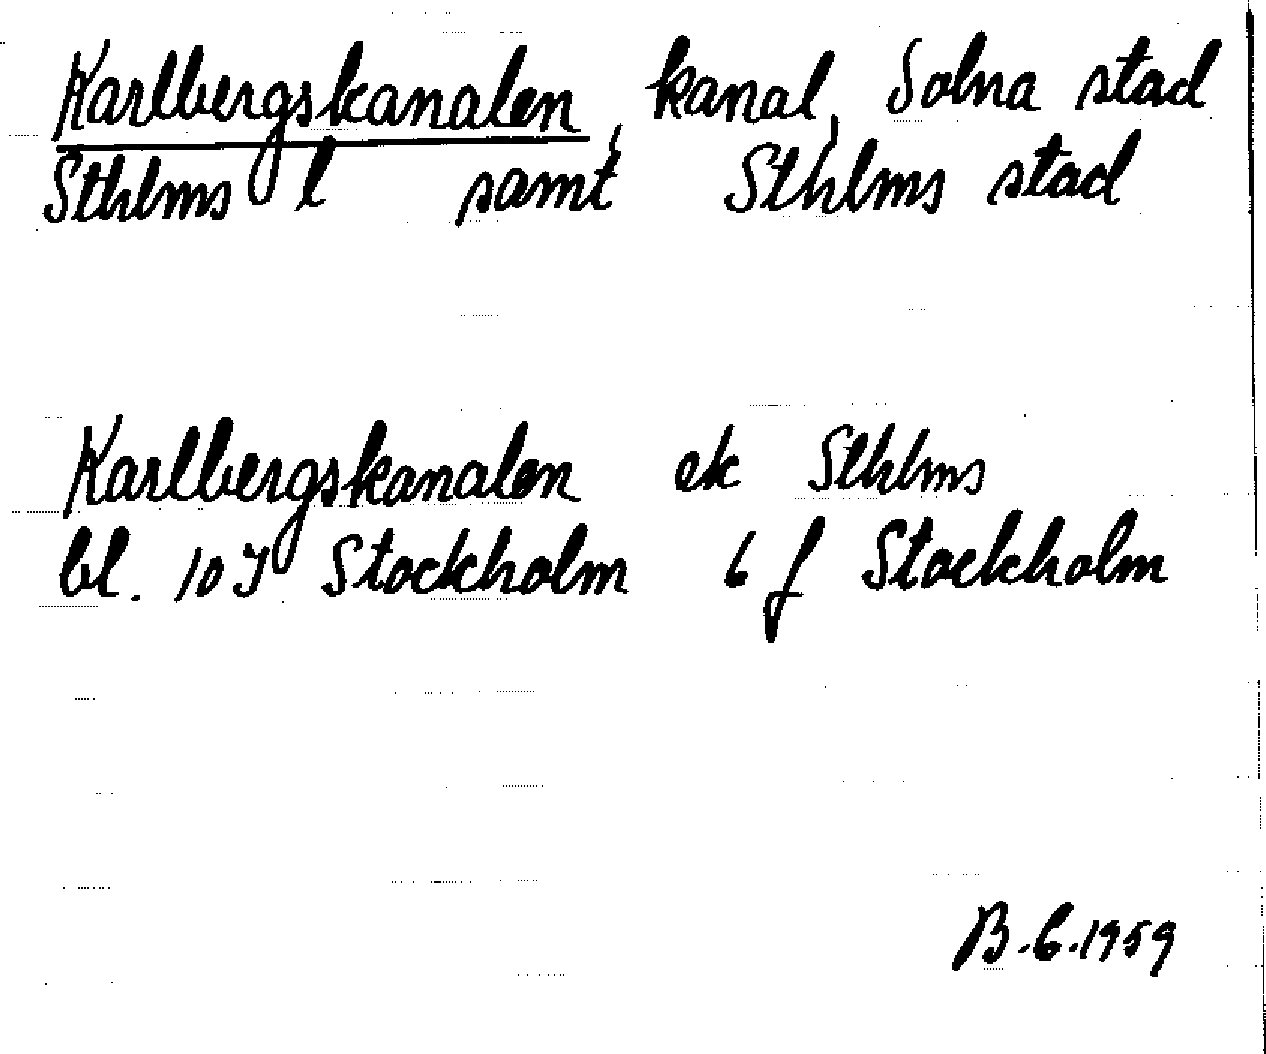 Karlbergskanalen, kanal, Solna stad
Sthlms l samt Sthlms stad
Karlbergskanalen ek Sthlms
bl. 10 I Stockholm 6 f Stockholm
B.C.1959